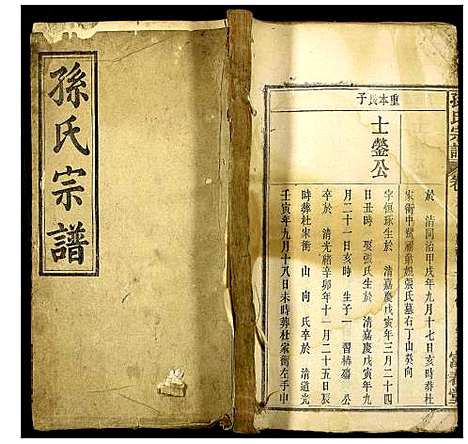 孫氏宗譜
孫氏宗譜
重本長子
士鎣公
於 清同治甲戌年九月十七日亥時葬杜
家衝中嘴 張氏墓右丁山癸向
字恒琢生於 清嘉慶戊寅年三月二十四
日丑時 娶張氏生於 清嘉慶戊寅年九
月二十一日亥時 生子一 習 公
卒於 清光緒辛卯年十一月二十五日辰
時葬杜家衝 山 向 氏卒於 清道光
壬寅年九月十八日未時葬杜家衝左手申